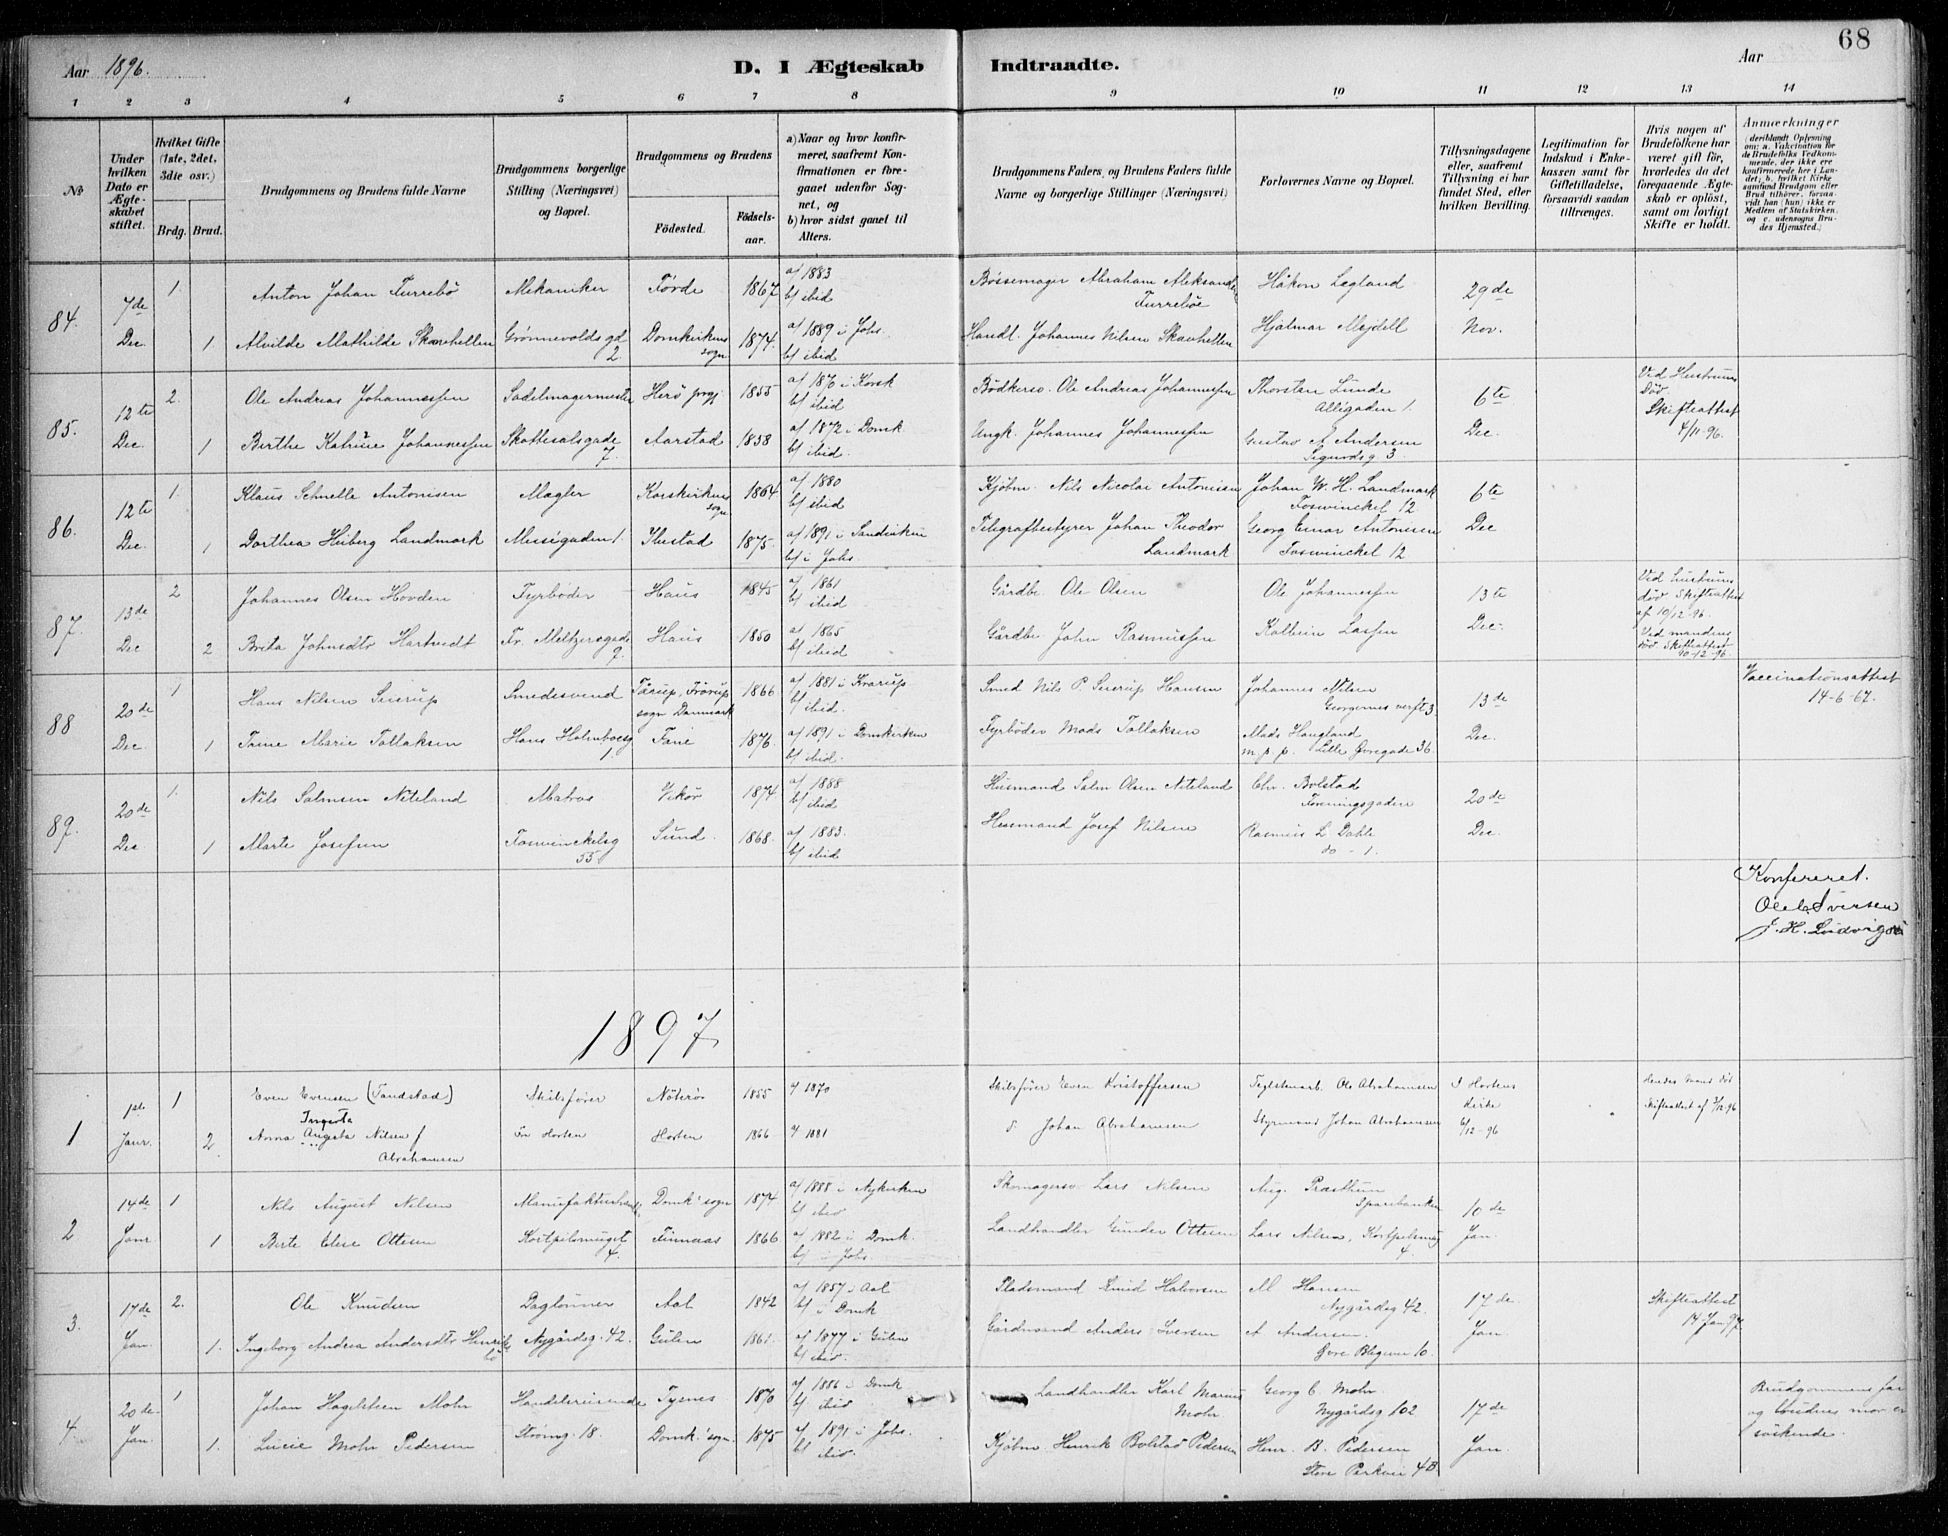 68
Aar 1896.
D. I Ægteskab Indtraadte.
Aar
1 2 3 4 5 6 7 8 9 10 11 12 13 14
No
Under hvilken Dato er Ægteskabet stiftet.
Hvilket Gifte (1ste, 2det, 3die osv.)
Brdg. Brud.
Brudgommens og Brudens fulde Navne
Brudgommens borgerlige Stilling (Næringsvei) og Bopæl.
Brudgommens og Brudens
Födested.
Födselsaar.
a) Naar og hvor konfirmeret, saafremt Konfirmationen er foregaaet udenfor Sognet, og
b) hvor sidst ganet til Alters.
Brudgommens Faders, og Brudens Faders fulde Navne og borgerlige Stillinger (Næringsvei)
Forlovernes Navne og Bopæl.
Tillysningsdagene eller, saafremt Tillysning ei har fundet Sted, efter hvilken Bevilling.
Legitimation for Indskud i Enkekassen samt for Giftetilladelse, forsaavidt saadan tiltrænges.
Hvis nogen af Brudefolkene har været gift för, hvorledes da det foregaaende Ægteskab er oplöst, samt om lovligt Skifte er holdt.
Anmærkninger (deriblandt Oplysning om: a. Vakcination för de Brudefolks Vedkommende, der ikke ere konfirmerede her i Landet; b. hvilket Kirkesamfund Brudgom eller Brud tilhörer, forsaavidt han (hun) ikke er Medlem af Statskirken, og c. udensogns Brudes Hjemsted.)
84. 7de 1. Anton Johan Furrebö Mekaniker Förde 1867 a/ 1883 Bössemager Abraham Aleksander Håkon Legland 29de
b/ ibid Furreböe
Dec. 1 Alvilde Mathilde Skavhellen Grönnevolds gd Domkirkens 1874. a/ 1889 i Johs. Handl. Johannes Nilsen Skavhellen Hjalmar Mejdell Nov.
2 sogn b/ ibid
85. 12te 2. Ole Andreas Johannessen Sadelmagermester Herö prgj. 1855 a/ 1870 i Korsk Bödkersv. Ole Andreas Johannessen Thorstan Lunde 6te Ved Hustruens Död
b/ ibid Alligaden 1. Skifteattest
Dec. 1 Birthe Katrine Johannessen Skottesalsgade Aarstad 1858 a/ 1872 i Domk. Ungk. Johannes Johannessen Gustav A Andersen Dec. 4/11-96.
7. b/ ibid. Sigurdsg 3
86. 12te 1. Klaus Schnelle Antonisen Mægler Korskirkens 1864 a/ 1880 Kjöbm. Nils Nicolai Antonisen Johan W. H. Landmark 6te
sogn b/ ibid Foswinckel 12
Dec. 1 Dorthea Heiberg Landmark Messigaden 1. Ylvestad 1875. a/ 1891 i Sandviken Telegrafbestyrer Johan Theodor Georg Einar Antonisen Dec
b/ i Johs. Landmark Foswinckel 12
87. 13de 2 Johannes Olsen Hovden Fyrböder Haus 1845 a/ 1861 Gårdbr. Ole Olsen Ole Johannessen 13te Ved hustruens död Skifteattest
b/ ibid af 10/12-96.
Dec 2 Brita Johnsdtr Hartvedt Fr. Meltzersgade Haus 1850 a/ 1865 Gårdbr John Rasmussen Kolbein Lassen Dec. Ved mandens död Skifteattest
9. b/ ibid 10-12-96.
88 20de 1 Hans Nilsen Sererup Smedesvend Tårup, Frörup 1866 a/ 1881 i Krarup Smed Nils P. Sererup Hansen Johannes Nilsen 13de Vaccinationsattest
sogn Danmark b/ ibid Georgernes verft 3. 14-6-67.
Dec. 1 Trine Marie Tollaksen Hans Holmboesg Fane 1876. a/ 1891 i Domkirken Fyrböder Mads Tollaksen Mads Haugland Dec.
1. b/ ibid. m. p. p. Lille Övregade 36
89. 20de 1. Nils Salmsen Niteland Matros Vikör 1874 a/ 1888 Husmand Salm Olsen Niteland Chr. Bolstad 20de
b/ ibid Foreningsgaden
Dec 1 Marte Josefsen Foswinckelsg Sund. 1868. a/ 1883. Husmand Josef Nilsen Rasmus L. Dahle Dec.
55 b/ ibid do - 1.
Konfereret.
Ole Iversen
J. H. Ludvigsen
1897
1 1ste 1 Even Evensen (Tandstad) Skibsförer Nöterö 1855 a/ 1870 Skibsförer Even Kristoffersen Teglstensarb. Ole Abrahamsen I Hortens Hendes Mand död
Ingesta kirke Skifteattest af 7/12-96
Janr. 2. Anna Augeta Nilsen f Fr Horten Horten 1866 a/ 1881 S. Johan Abrahamsen Styrmand Johan Abrahamsen 6/12-96
Abrahamsen
2 14de 1 Nils August Nilsen Manufakturhandl. Domk. sogn 1874 a/ 1888 i Nykirken Skomagersv Lars Nilsen Aug. Præsthun 10de
b/ ibid Sparebanken
Janr 1 Birte Elise Ottesen Kortpilsmuget Finnaas 1866 a/ 1882 i Domk. Landhandler Gunder Ottesen Lars Nilsen, Kortpilsmug Jan.
4. b/ i Johs. 4.
3. 17de 2. Ole Knudsen Daglönner Aal 1842 a/ 1857 i Aal Pladsmand Knud Halvorsen M Hansen 17de Skifteattest
b/ i Domk Nygårdsg 42. 14 Jan 97.
Jan. 1. Ingeborg Andrea Andersdtr Henriks Nygårdsg. 42. Gulen 1861. a/ 1877 i Gulen Gårdmand Anders Iversen A Andersen. Jan.
bö b/ ibid. Övre Blegevei 10.
4. 20de 1 Johan Hagelsteen Mohr Handelsreisende Tysnes 1870 a/ 1886 i Domk Landhandler Karl Marius Georg C. Mohr 17de Brudgommens far
b/ ibid Mohr Nygårdsg 102 og brudens mor er
Jan. 1. Lucie Mohr Pedersen Strömg. 18. Domk. sogn. 1875 a/ 1891 i Johs. Kjöbm Henrik Bolstad Pedersen Henr. B. Pedersen Jan. söskende.
b/ ibid. Store Parkvei 4B